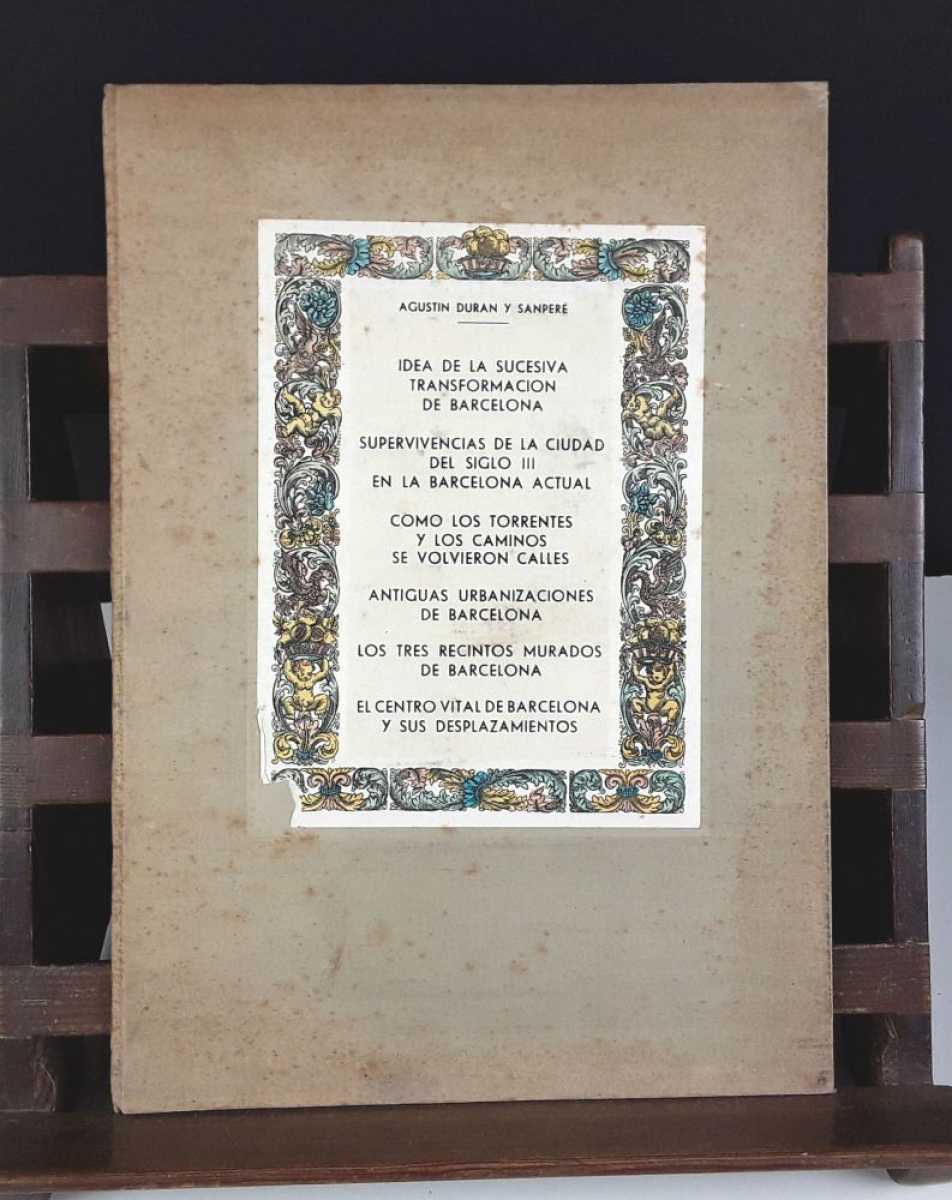 AGUSTIN DURAN Y SANPERE
IDEA DE LA SUCESIVA
TRANSFORMACION
DE BARCELONA
SUPERVIVENCIAS DE LA CIUDAD
DEL SIGLO III
EN LA BARCELONA ACTUAL
COMO LOS TORRENTES
Y LOS CAMINOS
SE VOLVIERON CALLES
ANTIGUAS URBANIZACIONES
DE BARCELONA
LOS TRES RECINTOS MURADOS
DE BARCELONA
EL CENTRO VITAL DE BARCELONA
Y SUS DESPLAZAMIENTOS